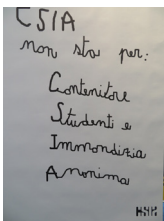 CSIA
non sta per:
Contenitore
Studenti e
Immondizia
Anonima